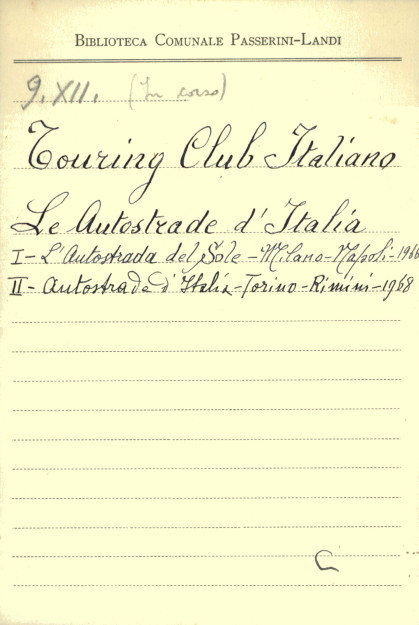 BIBLIOTECA COMUNALE PASSERINI-LANDI
9. XII. (In corso)
Touring Club Italiano
Le Autostrade d'Italia
I - L'Autostrada del Sole - Milano - Napoli - 1966
II - Autostrade d'Italia - Torino - Rimini - 1968
C